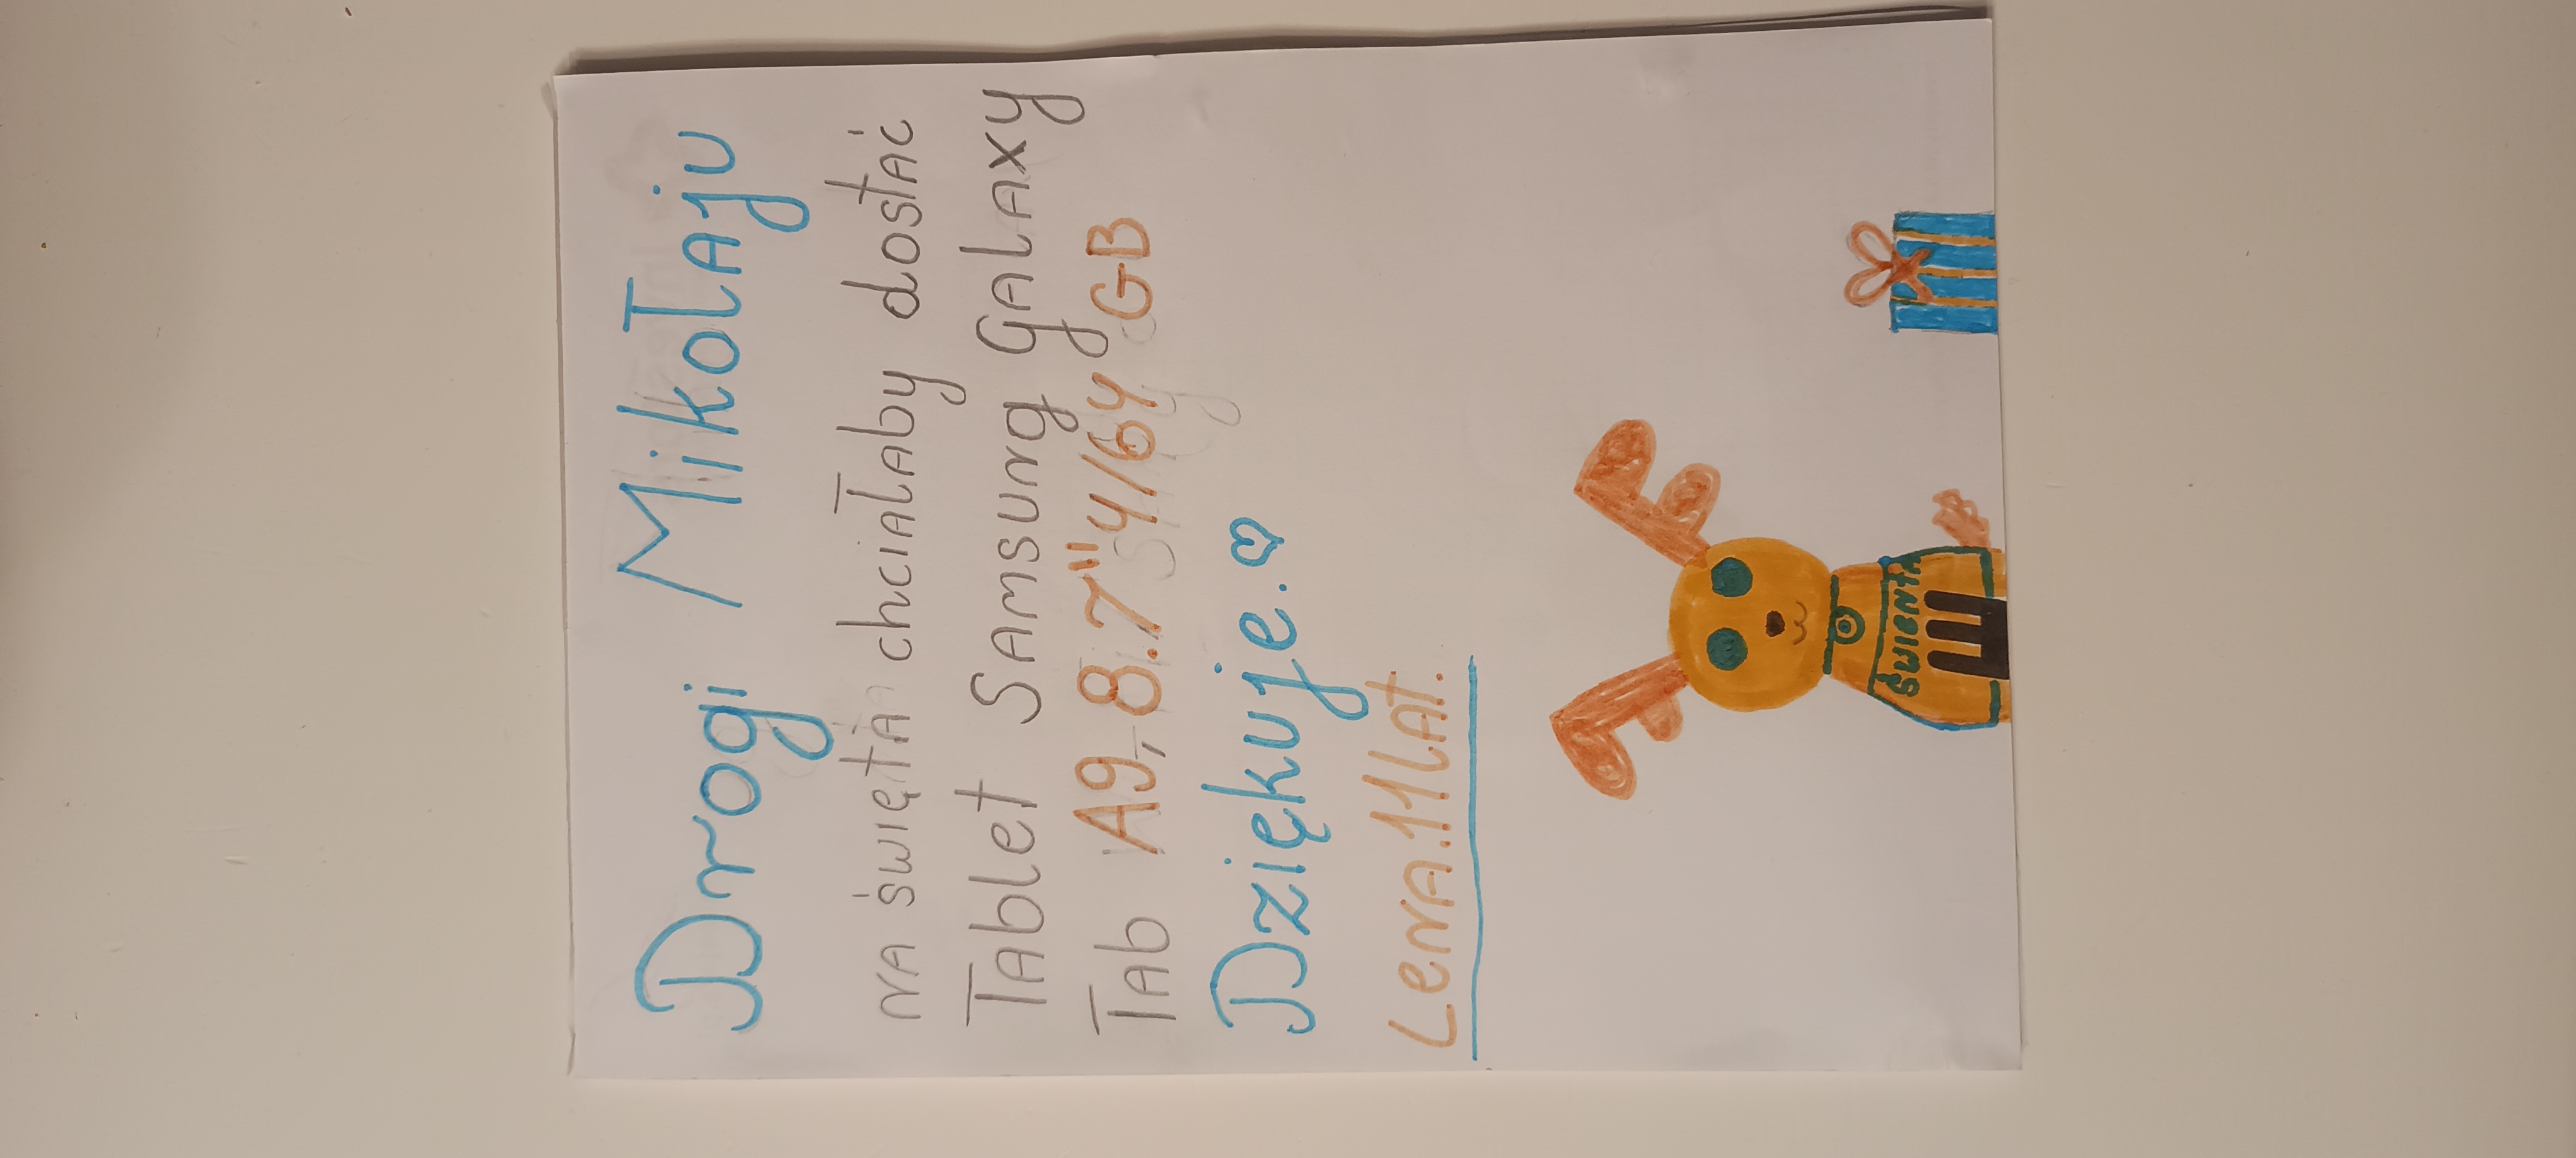 Drogi Mikołaju
na święta chciałaby dostać
Tablet Samsung Galaxy
Tab A9, 8.7" 4/64 GB
Dziękuje. ♡
Lena. 11 lat.
Święta